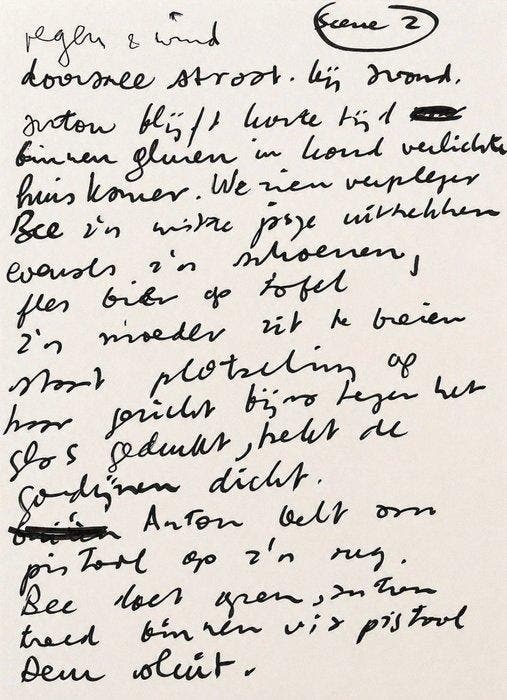 Scene 2
regen & wind
doorsnee straat. bij avond.
anton blijft korte tijd
binnen gluren in hond verlichte
huiskamer. We zien verpleger
Bee z'n witte jasje uittrekken
evenals z'n schoenen,
fles bier op tafel
z'n moeder zit te breien
staat plotseling op
haar gezicht bijna tegen het
glas gedrukt, trekt de
gordijnen dicht.
Anton belt om
pistool op z'n rug.
Bee doet open, anton
treed binnen vis pistool
Dem sluit.